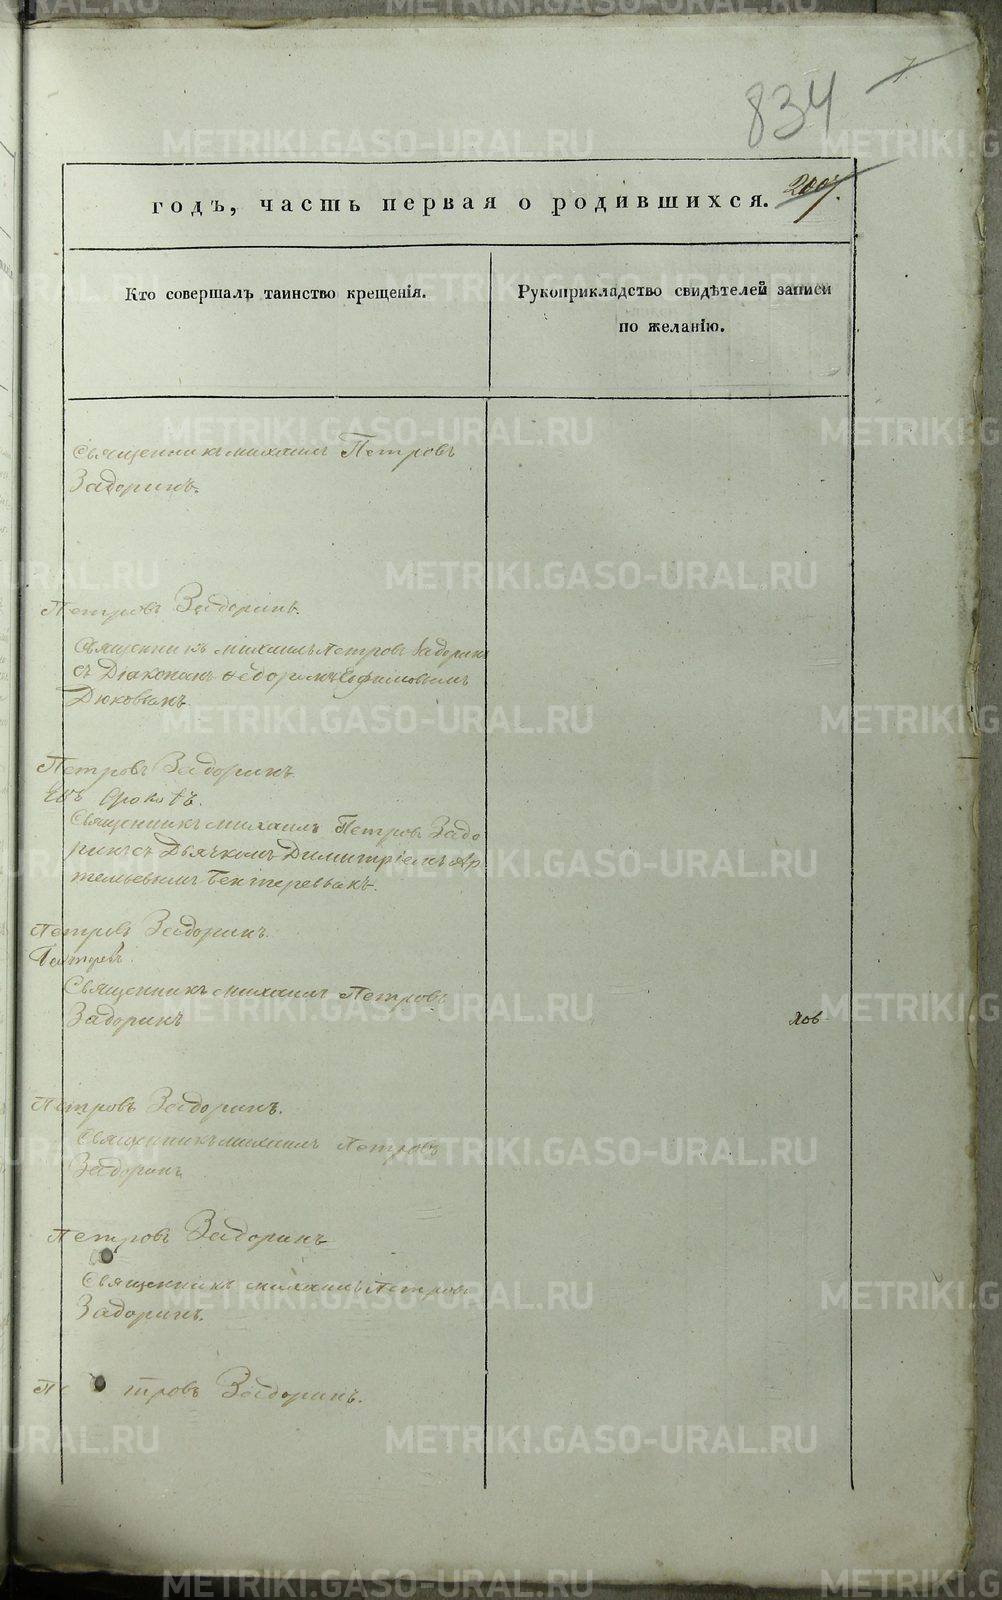 834
годъ, часть первая о родившихся.
Кто совершалъ таинство крещенія.
Рукоприкладство свидѣтелей записи
по желанію.
Священникъ Михаилъ Петровъ
Задоринъ.
Петровъ Задоринъ.
Священникъ Михаилъ Петровъ Задоринъ
съ Діакономъ Ѳедоромъ Ефимовымъ
Петровъ Задоринъ
Священникъ Михаилъ Петровъ Задо
ринъ съ Дьячкомъ Димитріемъ Ар
темьевымъ
Петровъ Задоринъ.
Священникъ Михаилъ Петровъ
Задоринъ
Петровъ Задоринъ.
Священникъ Михаилъ Петровъ
Задоринъ
Петровъ Задоринъ
Священникъ Михаилъ Петровъ
Задоринъ.
Петровъ Задоринъ.
METRIKI.GASO-URAL.RU